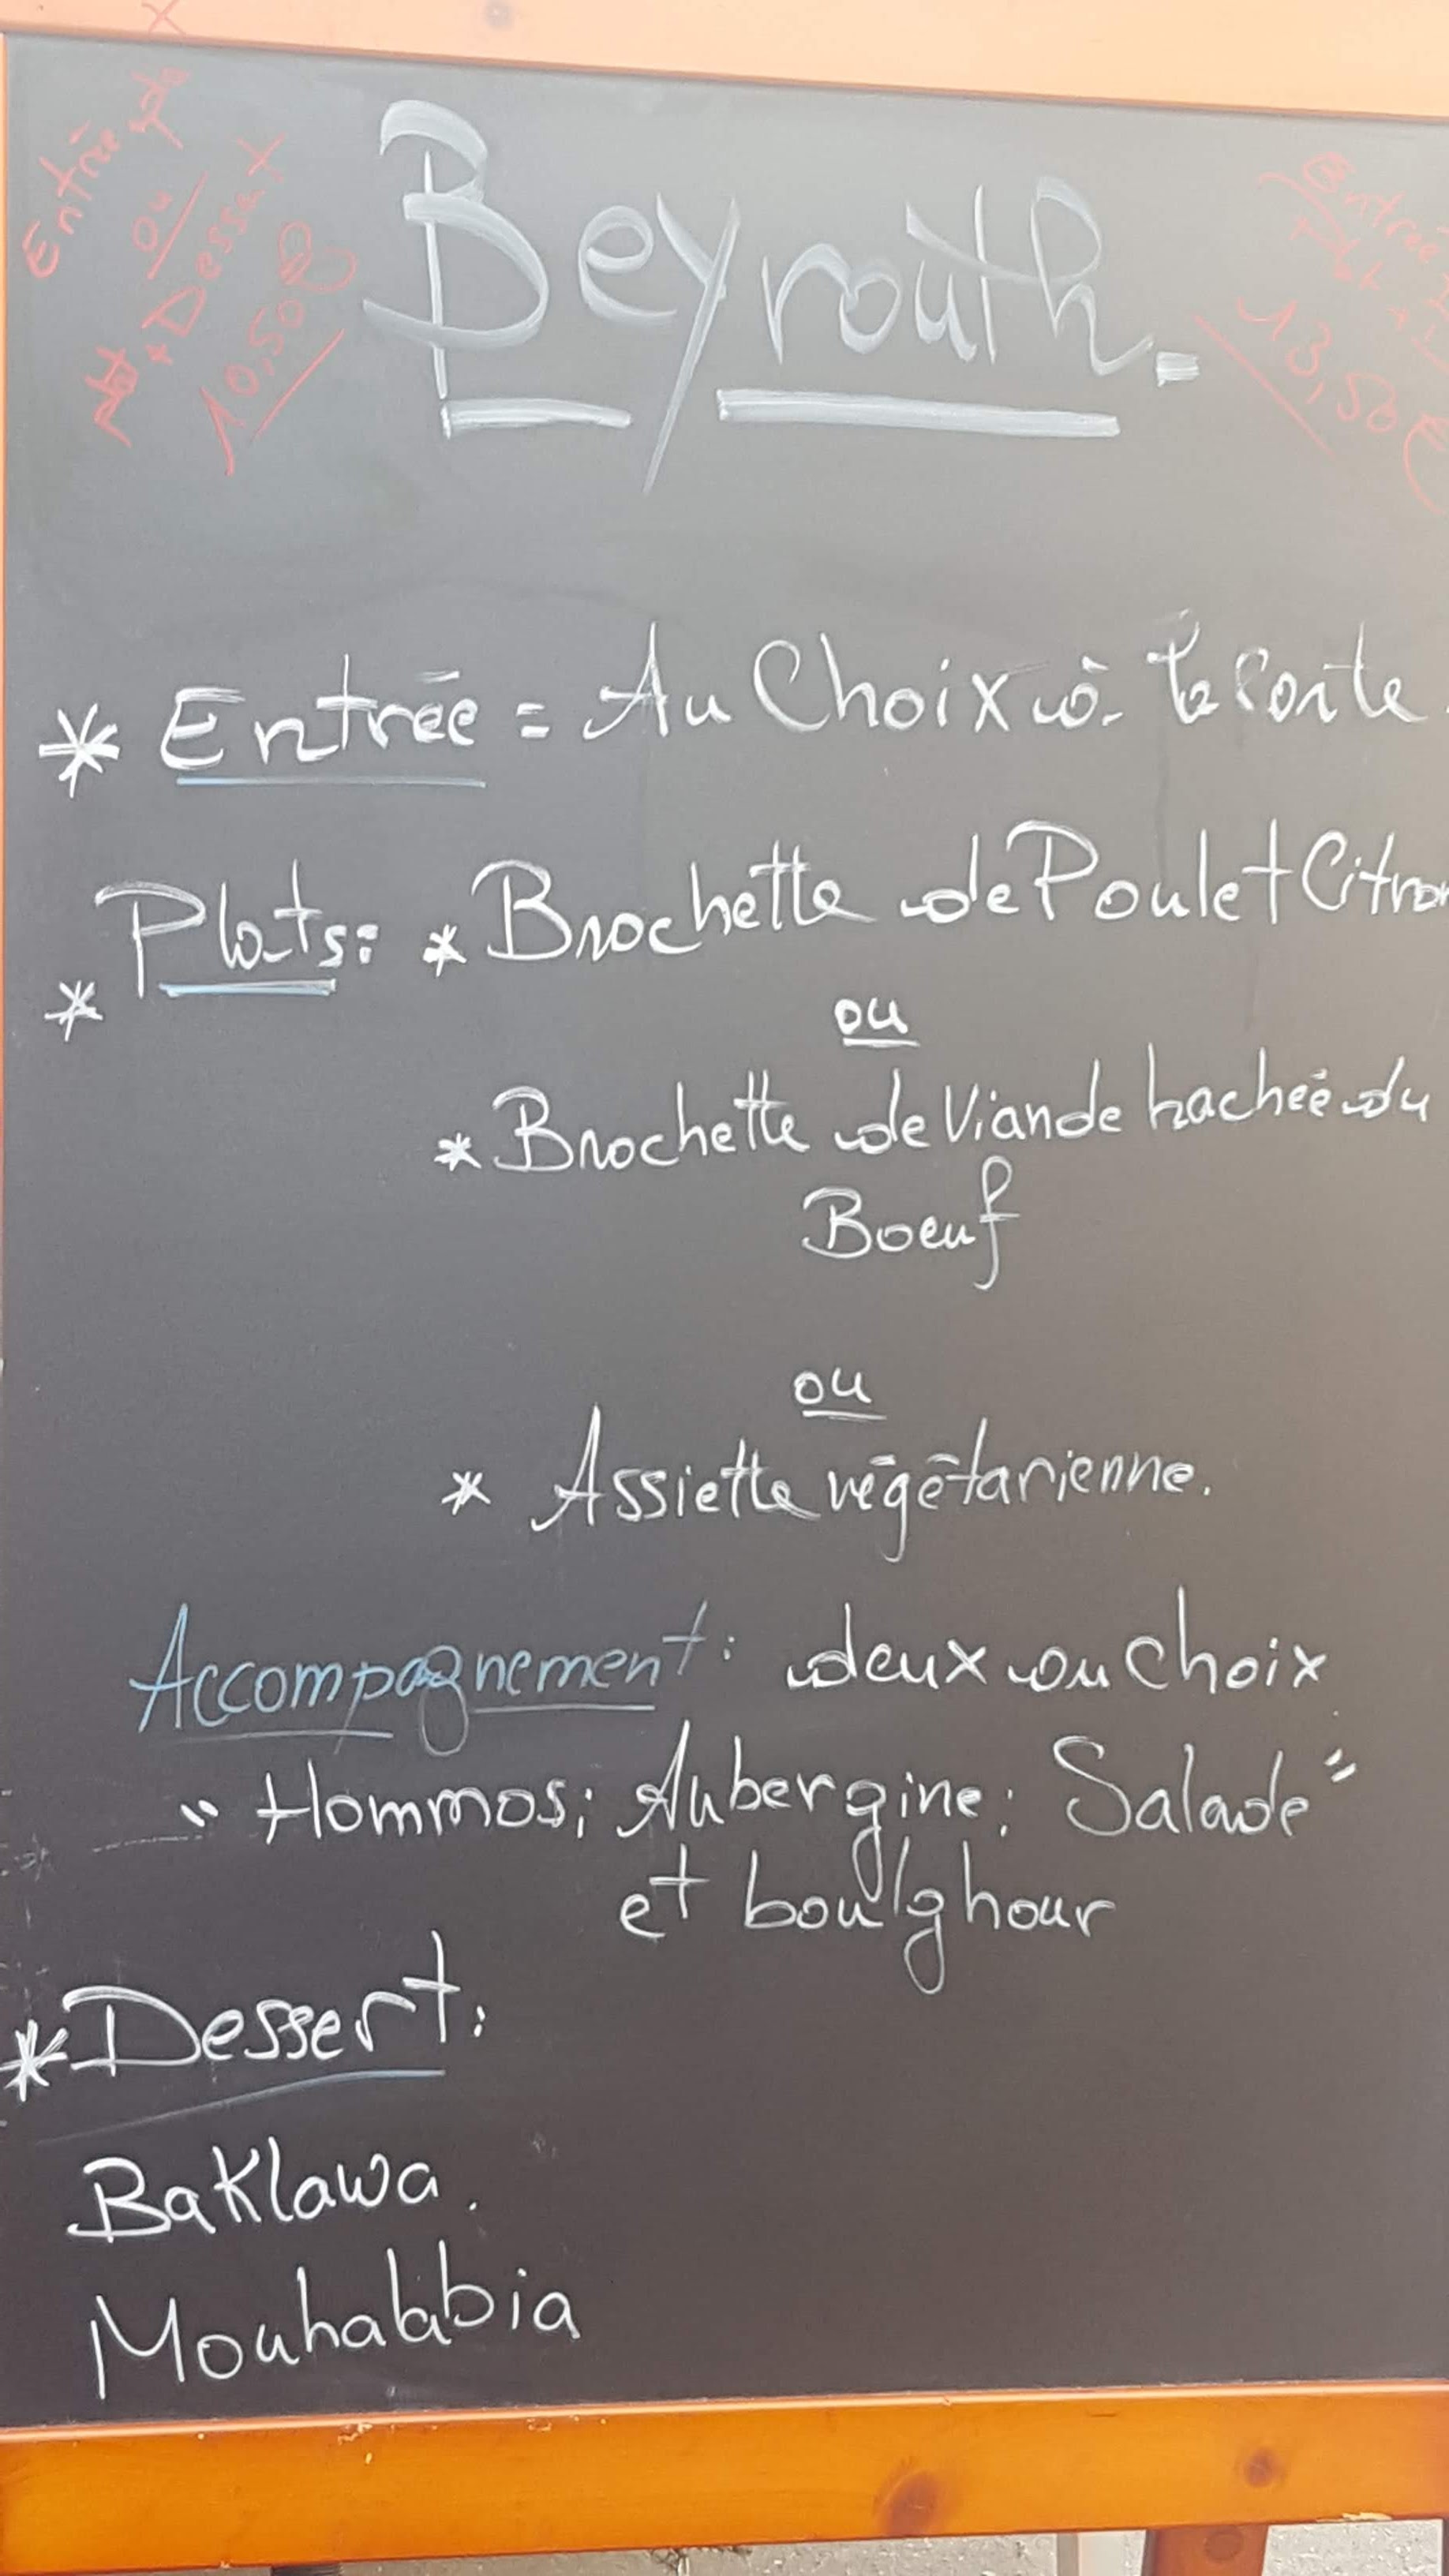 Entrée
ou
+ Dessert
10,50€
Entrée
Plat +
13,50€
Beyrouth.
* Entrée = Au Choix à la Carte.
* Plats: * Brochette de Poulet Citron
ou
* Brochette de Viande hachée du
Boeuf
ou
* Assiette végétarienne.
Accompagnement: deux au choix
" Hommos; Aubergine; Salade "
et boulghour
* Dessert:
Baklawa.
Mouhalabia